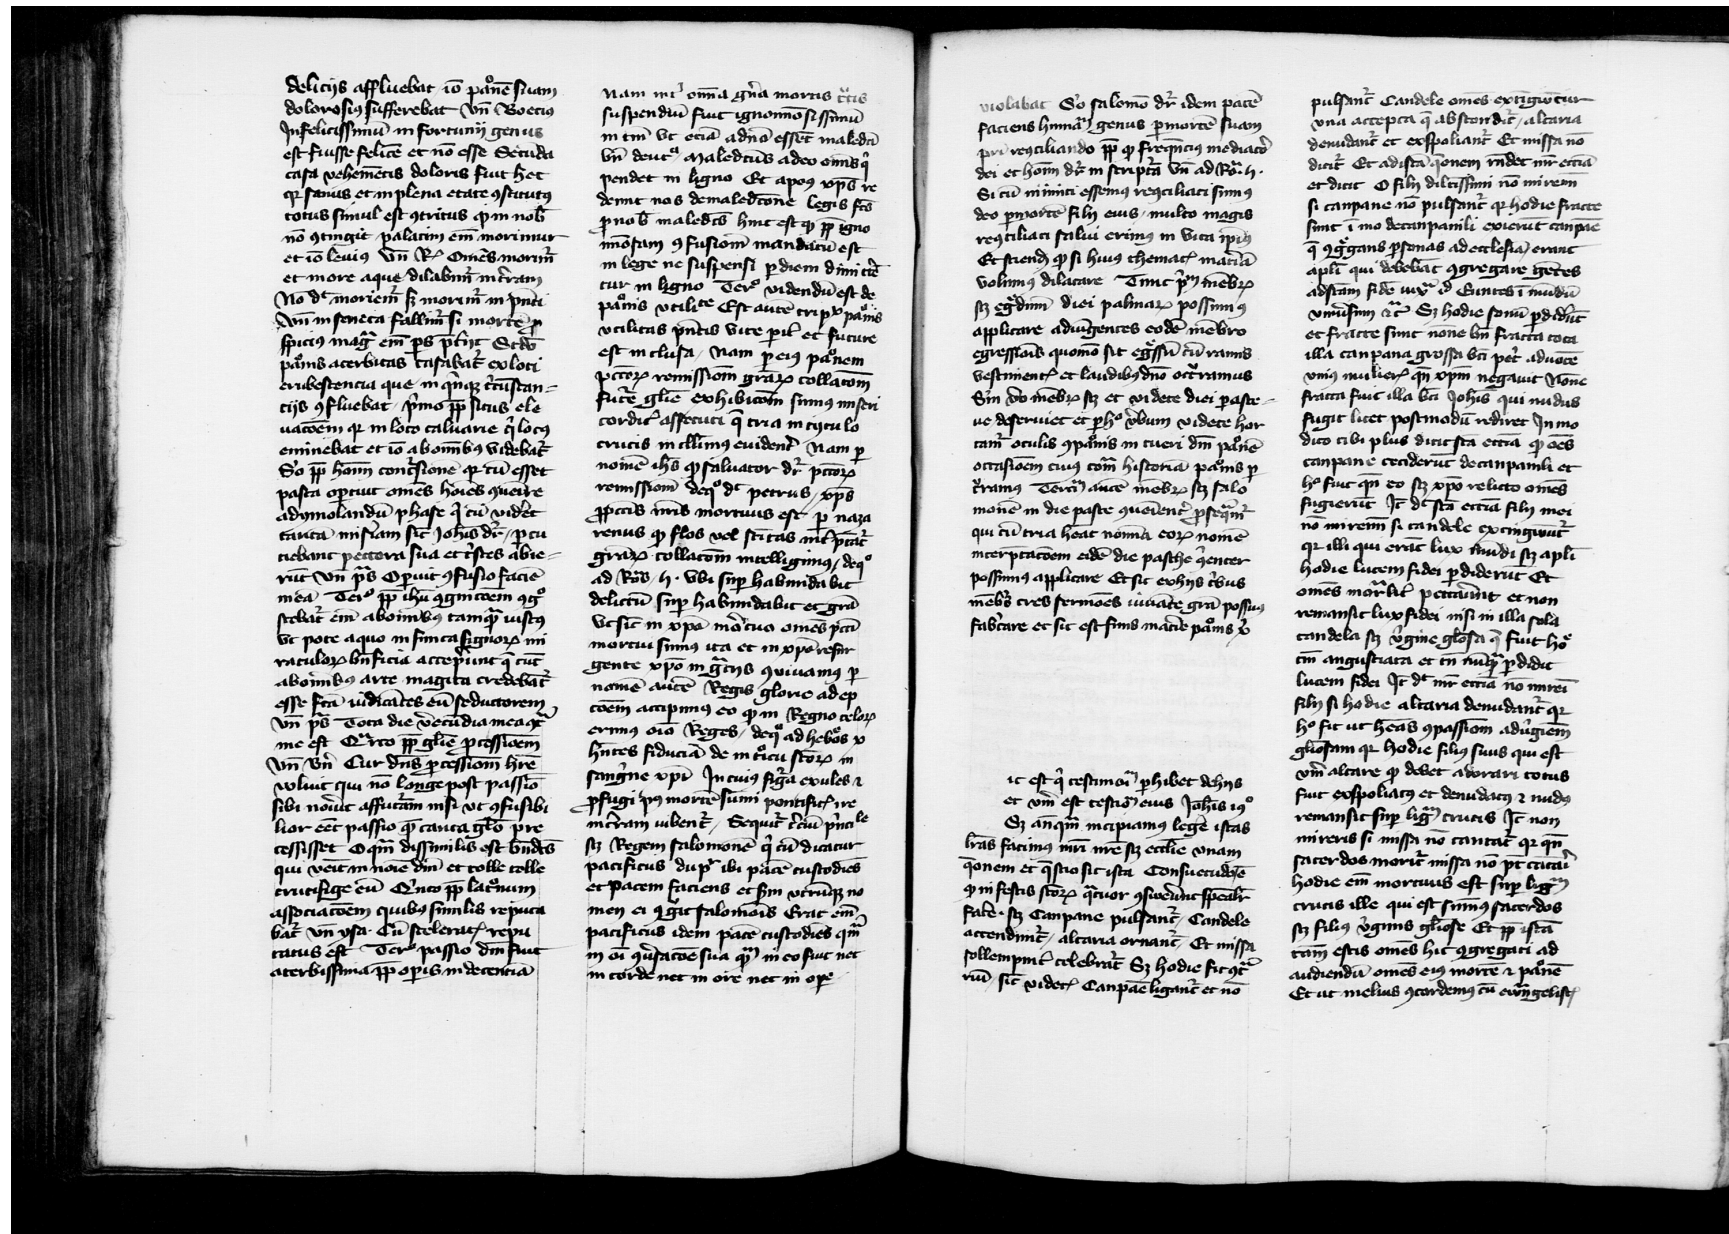 deliciis affluebat io pañem suam
dolorosius sufferebat Vñ Boecius
Infelicissimum infortunij genus
est fuisse felicē et nō esse Secūda
causa vehemētis doloris fuit hec
qr sanus et in plena etate ɔstitutus
totus simul est ɔtritus qđ in nob
nō ɔtingit palatim em̄ morimur
et iō levius Vñ Rꝫ Omēs morim̄
et more aque dilabim̄ in t̄ram
No dt moriem̄ sꝫ morim̄ in pn̄ti
Vñ in seneca fallim̄ si mortē ꝓ
spicimus mag em̄ ps pt̄ijt
pañis acerbitas causabat̄ ex loci
erubescentia que in
cijs ɔfluebat p̄mo ꝓp̄ situs ele
vacōem qr in loco caluarie q̄ locus
eminebat et iō ab oīnibus videbat̄
Sō ꝓp̄ hoīm qr cū esset
pasca opt̄uit omēs hoīes ɔuenire
ad ymolandū phase q̄ cū viderēt
tantā mis̄iam sic Johīs dr̄ pcu
ciebant pectora sua et t̄stes abie
rūt Vñ ps Op̄uit ɔfusio faciē
meā Terō ꝓp̄ ihū ɔgnicōem ɔgō
scebat̄ em̄ ab oīnibus tamq̄ iustus
vt pote a quo infinita signorꝫ mi
raculorꝫ bn̄ficia accep̄unt q̄ cūc
ab oīnibus arte magica credebāt̄
esse fcā iudicātes eū seductorem
Vñ ps Tota die v̄ecūdia mea ɔt̄
me est Q̄rto ꝓp̄ gl̄ie ꝓcessiōem
Vñ Cur dn̄s ꝓcessiōm hr̄e
voluit qui nō longe post passiō
sibi nov̄at affut̄am nisi vt ɔfusibi
lior eēt passio q̄ tanta glō pre
cessisset Oq̄m dissimilis est bn̄dcūs
qui veīt in noīe dn̄i et tolle tolle
crucifige eū Qīnto ꝓp̄ latronum
associacōem quibus similis reputa
bat̄ Vñ ysa Cū sceleratꝫ repu
tatus est Terō passio dn̄i fuit
acerbissima ꝓp̄ opīs indecenciā
Nam int̄ omīa gn̄a mortis
suspendiū fuit ignomīosissimū
in tm̄ vt eciā ad nō essent maledcī
Vñ deutō Maledcūs a deo omīs q̄
pendet in ligno Et apōus xp̄s re
demit nos de maledcōne legis fcs̄
pro nob̄ maledcs̄ hinc est qđ ꝓp̄ igno
miōsam ɔfusiōm mandatū est
in lege ne suspensi p diem dimitt̄e
tur in ligno Terō videndū est de
pañis vtilite Est autē triplx̄ pañis
vtilitas pn̄tis vite pīl et future
est inclusa Nam p eius pañem
pctōrꝫ remissiōm grārꝫ collacōm
fut̄e glīe exhibicōm sumus miseri
corditꝫ assecuti q̄ tria in tytulo
crucis intllīmus evident̄ Nam p
nomē ihs̄ qđ saluator dr̄ pctōrꝫ
remissiōm deqō dt petrus xp̄s
ꝓ pctīs nr̄is mortuus est p naza
renus qđ flos vel sc̄itas int̄ptāt̄
grārꝫ collacōm intelligimus deqō
ad Rōs h vbi sup habundabit
delictū sup habundabit et grā
Vt sic in xp̄o mōtuo omēs pctī
mortui sumus ita et in xp̄o resur
gente xp̄o in grācijs ɔuiuamus p
nomē autē Regis glorie adep
cōem accipimus eo qđ in Regno celorꝫ
erimus oīō Reges deqō ad hebōs x
hn̄tes fiduciā de introitu sctōrꝫ in
sang̃ne xp̄i In cuius fig̃a exules ⁊
ꝓfugi p̄us mortē sumi pontificꝫ ire
in t̄ram iubent̄ Sequit̄ t̄ciū p̄nci le
sꝫ Regem salomonē q̄ cū dicatur
pacificus dupl̄r ibi pacē custodiēs
et pacem faciens et sm̄ vtrūqꝫ no
men ei ɔg̃it salomōis Erat em̄
pacificus idem pacē custodiēs qm̄
in oī ɔv̄sacōe sua in eo fuit nec
in corde nec in ore nec in ope
violabat Sō salomō dr̄ idem pacē
faciens hum̄ā genus p mortē suam
pri reɔciliando ꝓp̄ qđ freqn̄cius mediatōr
dei et hoīm dr̄ in scriptā Vñ ad Rōs h
Si cū inimici essemus reɔciliati sumus
deo p mortē filij eius multo magis
reɔciliati salui erimus in vita ip̄ius
Et sciend qđ si huius thematꝫ matiā
volimus dilatare Tunc p̄m mēbrꝫ
sꝫ eg̃dimī diei palmarꝫ possumus
applicare adiungentes eodē mēbro
egressiōis quomō sic eg̃ssū cū ramis
vestimentꝫ et laudibus dn̄o occ̄ramus
Sm̄ v̄o mēbrꝫ sꝫ et videte diei pasce
ve deserviet et p hō v̄bum videte hor
tam̄ oculis ɔpañis intueri dn̄i pañē
occasiōem cuius totā historiā pañis p
t̄ramus Terciū autē mēbrꝫ sꝫ salo
monē in die pasce ɔuenient̄ ꝓseq̄m̄
qui cū tria heat nomīa eorꝫ nomē
interp̄tacōem eidē die pasche ɔ̄enter
possumus applicare Et sic ex hijs t̄bus
mēbs̄ tres sermōes iuuāte grā possum̄
fab̄care et sic est finis matie pañis x̄
ic est q̄ testimōi phibet de hijs
et vm̄ est testiōi eius Johīs 19º
Sꝫ anq̄m incipiamus lege istas
lrās facimus mr̄i nrē sꝫ ecclīe vnam
qōnem et q̄stio sit ista Consuetudīe
qđ in festis sctōrꝫ q̄tuor ɔsweverūt spēalr̄
fate sꝫ Canpane pulsant̄ Candele
accendunt̄ altaria ornant̄ Et missa
sollempnit̄ celebrat̄ Sꝫ hodie fit ɔt̄
riū sic videtꝫ Canpāe ligant̄ et nō
pulsant̄ Candele omēs extīgwūtur
vna accepta q̄ abscondit̄ altaria
denudant̄ et exspoliant̄ Et missa nō
dicit̄ Et ad istā qōnem rn̄det mr̄ eccīa
et dicit O filij dilcīssimi nō mirem̄
si canpane nō pulsant̄ qr hodie fracte
sunt īmo de canpanili exierūt canpāe
q̄ ɔg̃gans psonas ad ecclesiā erant
aplī qui debebāt ɔgregare gētes
ad scām fidē iuxᵃ id Euntes ī mūdū
vniuſum ⁊c̄ Sꝫ hodie sonū pdidūt
et fracte sunt nōne bn̄ fracta tota
illa canpana grossa bt̄i pet̄ ad vocē
vnius mulierꝫ qn̄ xp̄m negauit Nōne
fracta fuit illa bt̄i Johīs qui nudus
fugit licet postmodū rediret In mo
dico tibi plus dicit scā eccīa qđ oēs
canpane ceciderūt de canpanili et
hō fuit qn̄ eo sꝫ xp̄o relicto omēs
fugierūt It dt scā eccīa filij mei
nō mirem̄ si candele extingwūt̄
qr illi qui erāt lux mūdi sꝫ aplī
hodie lucem fidei pdiderūt Et
omēs mortalr̄ peccaverūt et non
remansit lux fidei nisi in illa sola
candela sꝫ v̄gine glōsa q̄ fuit hōe
tm̄ angustiata et tn̄ nūq̄ pdidit
lucem fidei It dt mr̄ eccīa nō mireī
filij si hodie altaria denudant̄ qr
hō fit ut heās ɔpassiōm ad v̄giēm
glīosam qr hodie filius suus qui est
vm̄ altare qđ debet adorari totus
fuit exspoliatus et denudatus ⁊ nudus
remansit sup lig̃m crucis It non
mireris si missa nō cantat̄ qr qn̄
sacerdos morit̄ missa nō pt̄ cātāī
hodie em̄ mortuus est sup lig̃m
crucis ille qui est sumus sacerdos
sꝫ filius v̄ginis glīose Et ꝓp̄ istā
cām estis omēs hic ɔgregati ad
audiendū omēs eius mortē ⁊ pañē
Et ut melius ɔcordemus cū ewāngelistꝫ